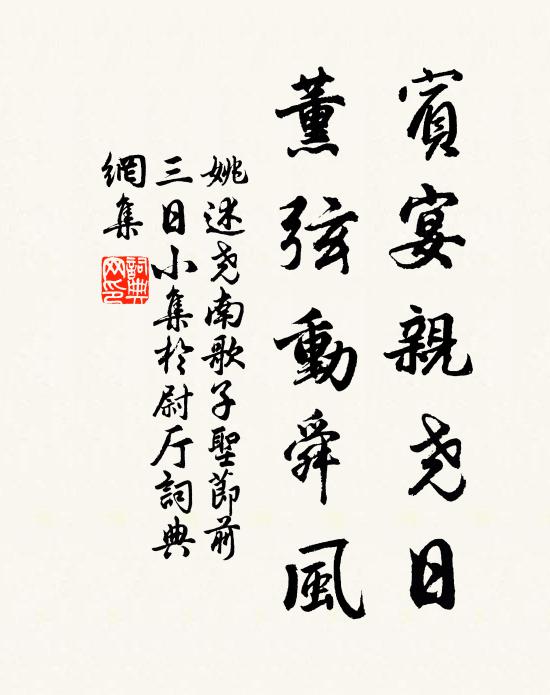 賓宴親尧日
薰弦動舜風
姚述尧南歌子聖節前
三日小集於尉厅詞典
網集
詞典網印